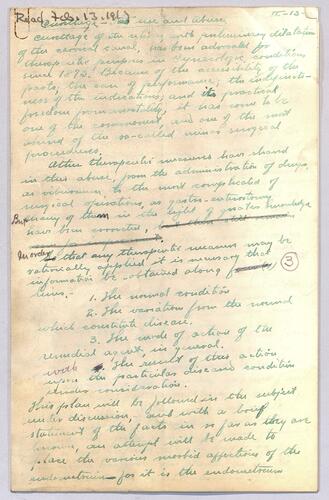 Read Feb. 13, 191
II-13-
Curettage - its use and abuse
curettage of the uterus with preliminary dilatation
of the cervical canal, has been advocated for
therapeutic purposes in gynecologic conditions
since 1843. Because of the accessibility of the
parts, the ease of performance, the indefinite-
ness of the indications, and its practical
freedom from mortality, it has come to be
one of the commonest, and one of the most
abused of the so-called minor surgical
procedures.
Other therapeutic measures have shared
in this abuse, from the administration of drugs,
as viburnum, to the most complicated of
surgical operations, as gastro-enterostomy.
But many of them in the light of greater knowledge
have been corrected,
In order that any therapeutic measure may be
rationally applied, it is necessary that
information be obtained along
3
lines. -
1. The normal condition
2. The variation from the normal
which constitute disease.
3. The mode of action of the
remedial agent, in general.
with The result of this action
upon the particular disease condition
under consideration.
This plan will be followed in the subject
under discussion, and with a brief
statement of the facts in so far as they are
known, an attempt will be made to
place the various morbid affections of the
endometrium - for it is the endometrium